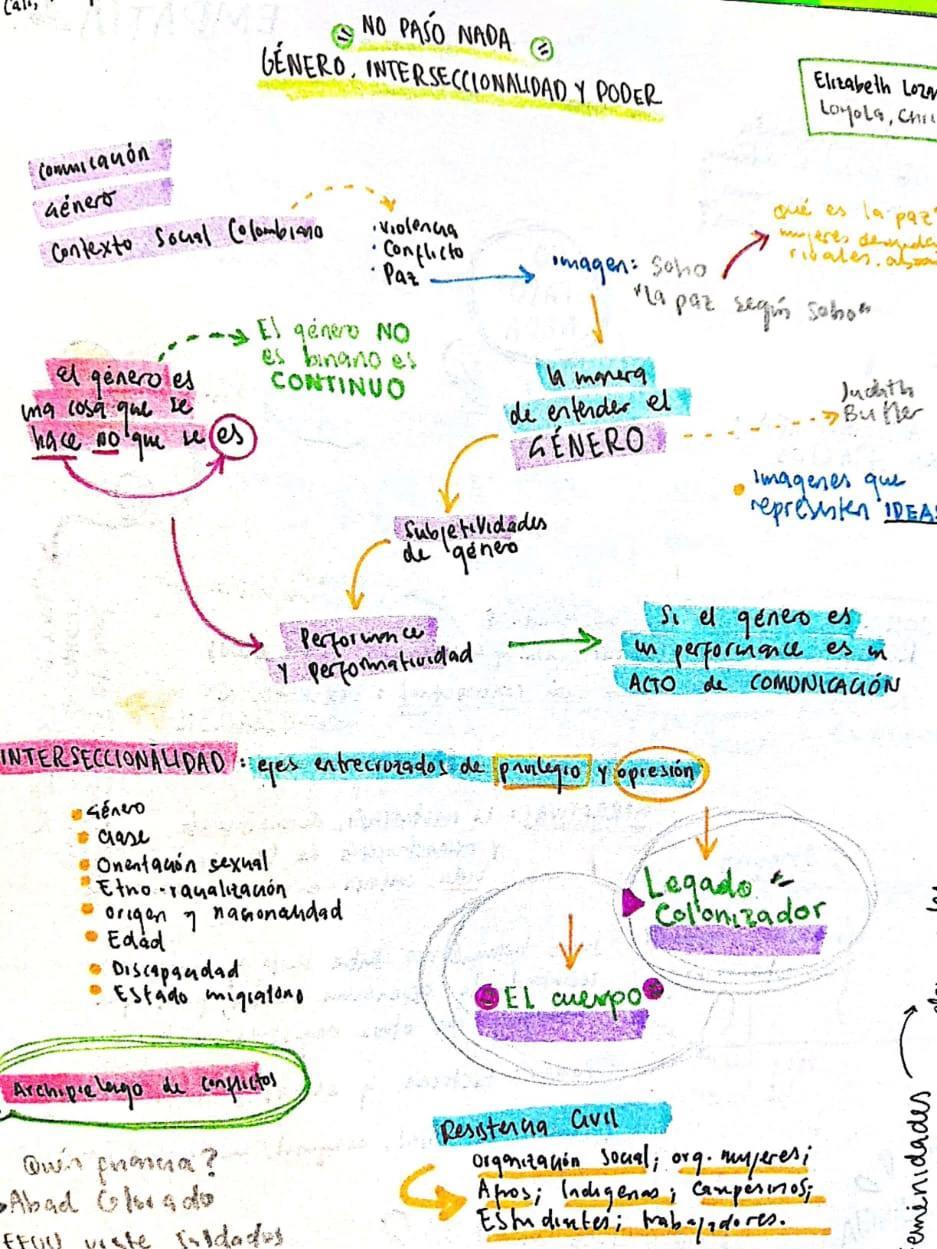 Cali,
NO PASÓ NADA
GÉNERO, INTERSECCIONALIDAD Y PODER
Elizabeth
Loyola,
Comunicación
Género
Contexto Social Colombiano
· Violencia
· Conflicto
· Paz
imagen: Soho
"la paz según Soho"
qué es la paz
mujeres
rivales.
El género NO
es binario es
CONTINUO
el género es
una cosa que se
hace no que se es
la manera
de entender el
GÉNERO
Judith
Butler
Imagenes que
representen IDEAS
Subjetividades
de género
Performance
y performatividad
Si el género es
un performance es un
ACTO de COMUNICACIÓN
INTERSECCIONALIDAD: ejes entrecruzados de privilegio y opresión
Género
Clase
Orientación sexual
Etno-racialización
origen y nacionalidad
Edad
Discapacidad
Estado migratorio
Legado
Colonizador
El cuerpo
Archipielago de conflictos
Resistencia Civil
Organización Social; org. mujeres;
Afros; Indígenas; Campesinos;
Estudiantes; trabajadores.
Abad Colorado
viste soldados